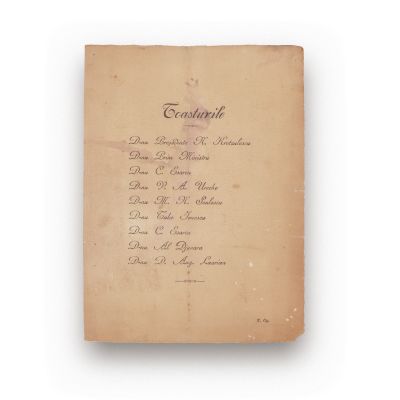 Toasturile
Dnu Preşedinte N. Kretzulescu
Dnu Prim Ministru
Dnu C. Esarcu
Dnu V. A. Ureche
Dnu M. N. Seulescu
Dnu Take Ionescu
Dnu C. Esarcu
Dnu Al Djuvara
Dnu D. Aug. Laurian